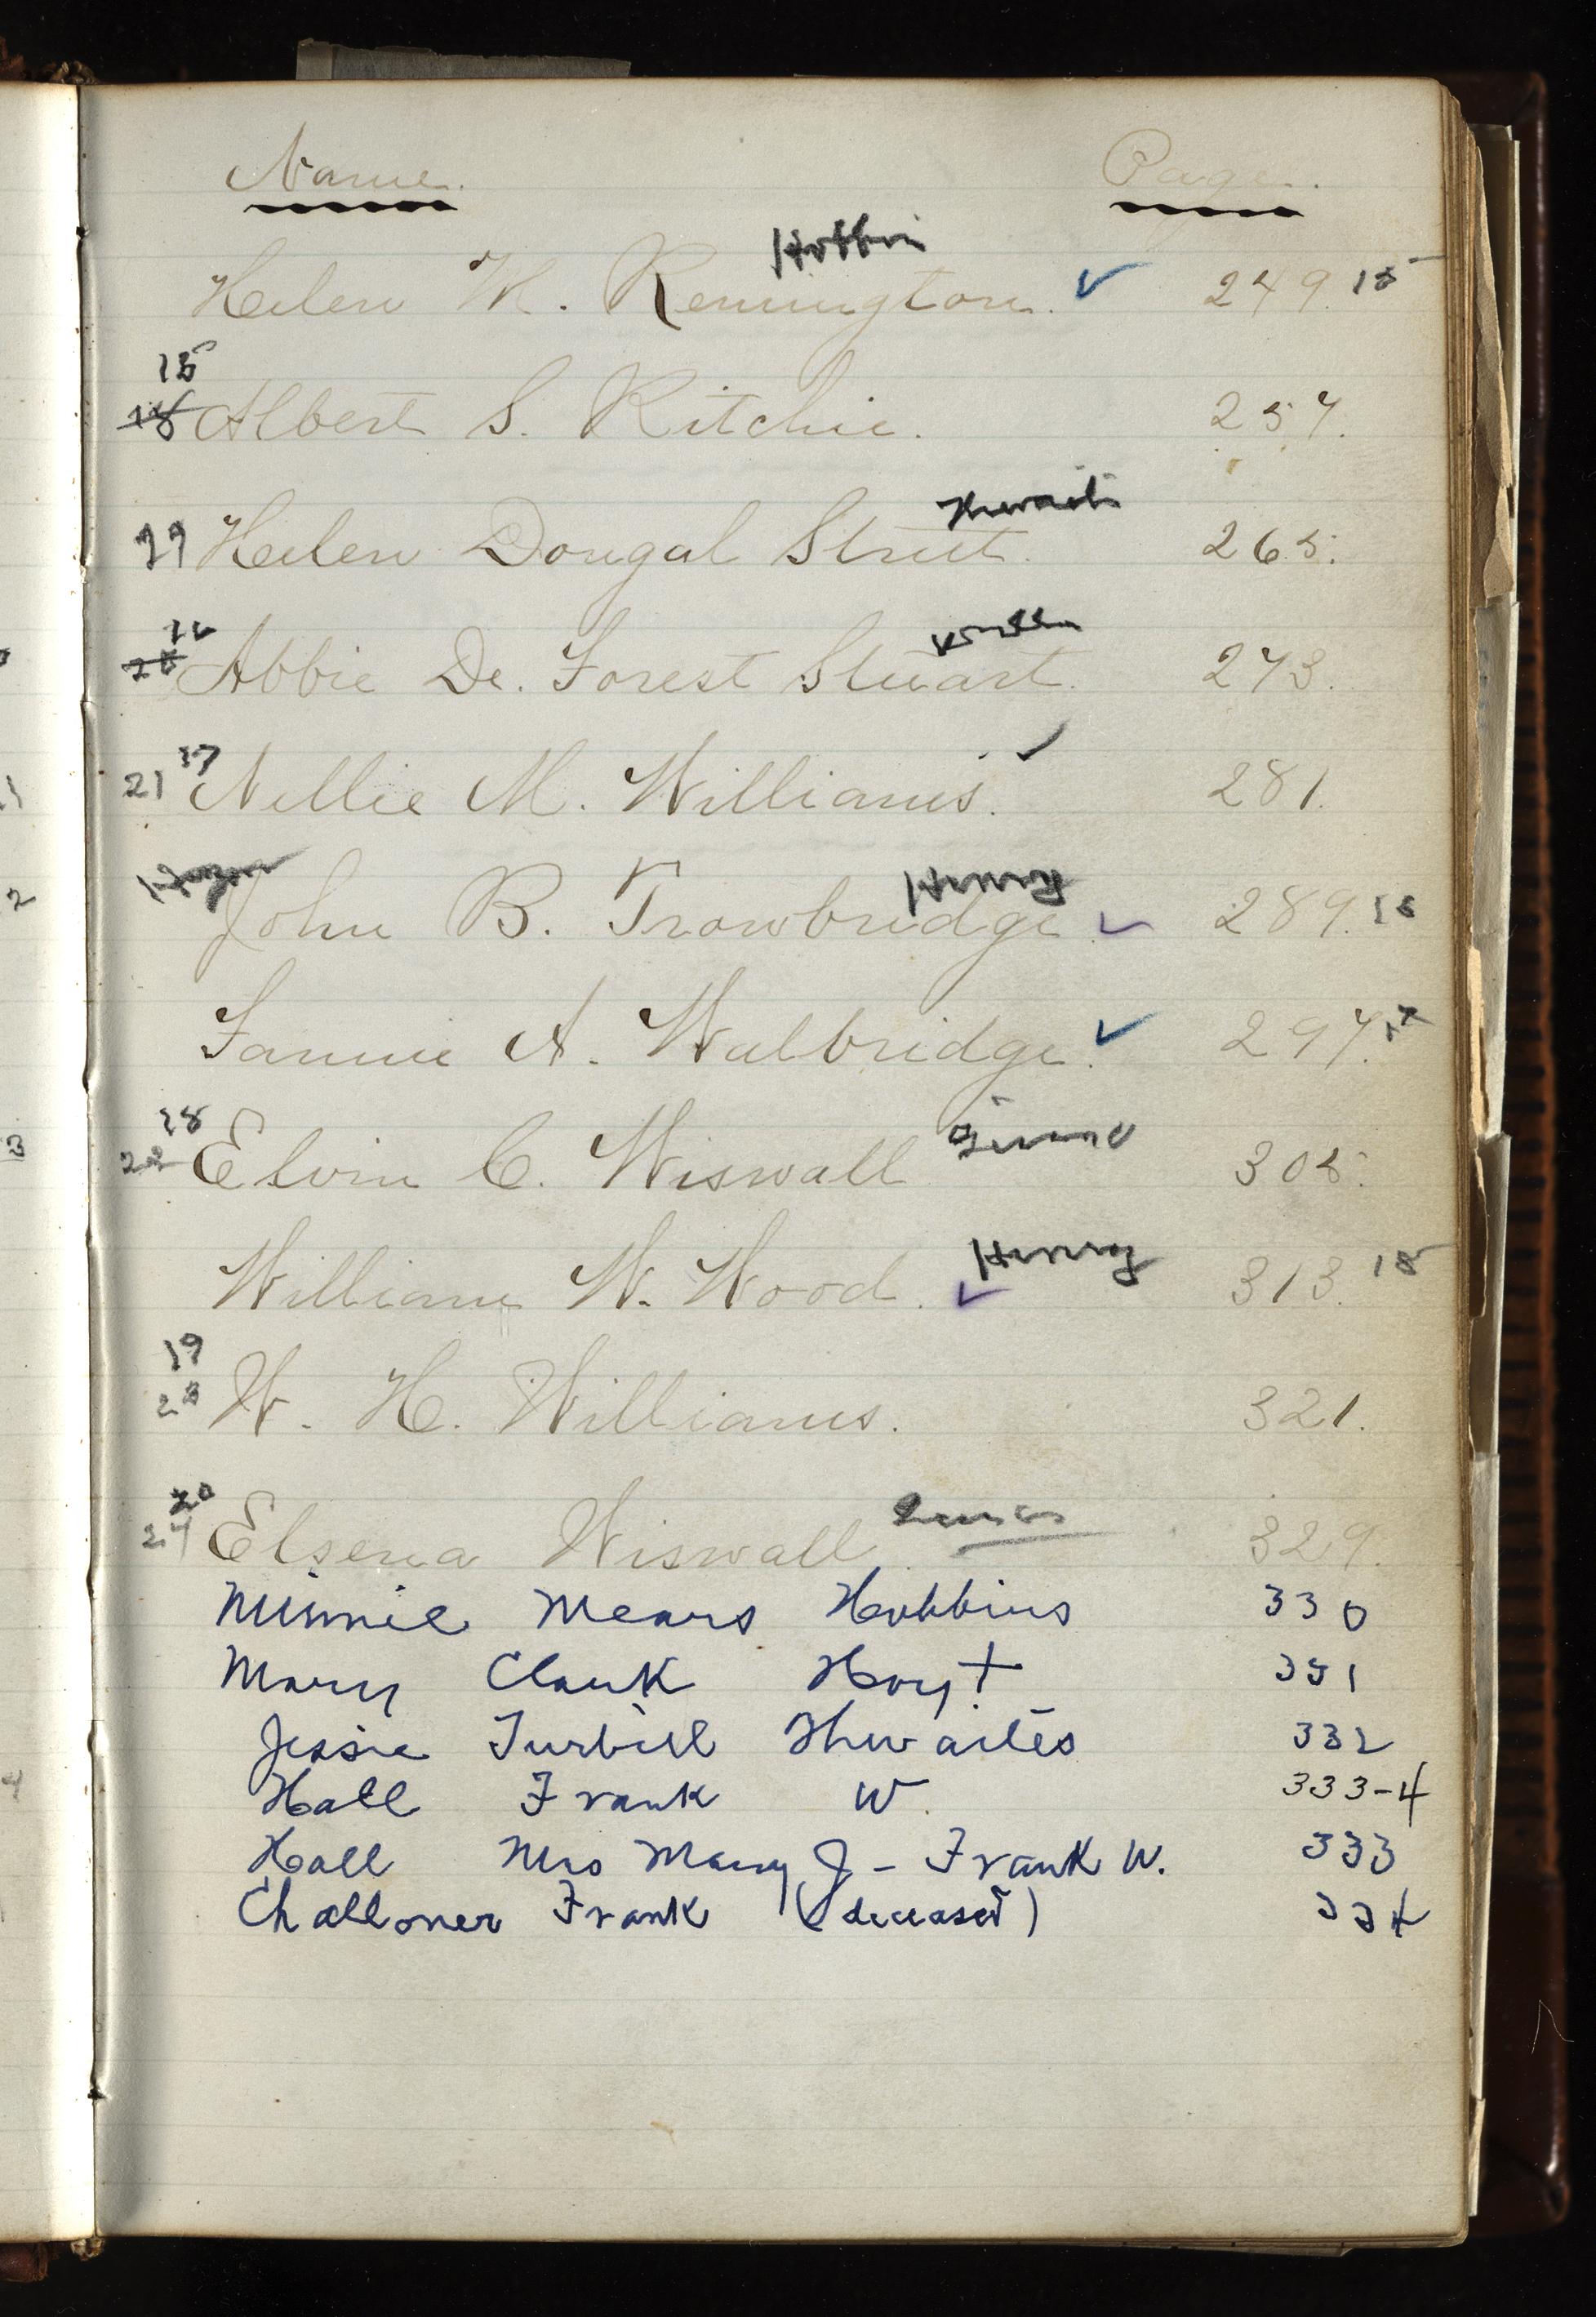 Name. Page.
Hobbin
Helen M. Remington. ✓ 249. 15
15
18 Albert S. Ritchie. 257.
Thwaits
19 Helen Dougal Street. 265.
16
20 Abbie De. Forest Stuart. 273.
17 ✓
21 Nellie M. Williams. 281.
Henry
John B. Trowbridge. ✓ 289. 16
Fannie A. Walbridge. ✓ 297. 17
18
22 Elvin C. Wiswall 305.
Henry
William W. Wood. ✓ 313. 18
19
23 W. H. Williams. 321.
20
24 Elsena Wiswall. 329.
Minnie Mears Hobbins 330
Mary Clark Hoyt 331
Jessie Turbill Thwaites 332
Hall Frank W. 333-4
Hall Mrs Mary J - Frank W. 333
Challoner Frank (deceased) 334